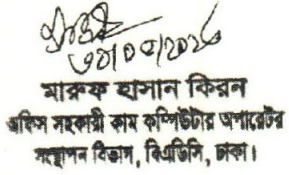 ৩০/০৭/২০২৩
মারুফ হাসান কিরন
অফিস সহকারী কাম কম্পিউটার অপারেটর
সংস্থাপন বিভাগ, বিএডিসি, ঢাকা।